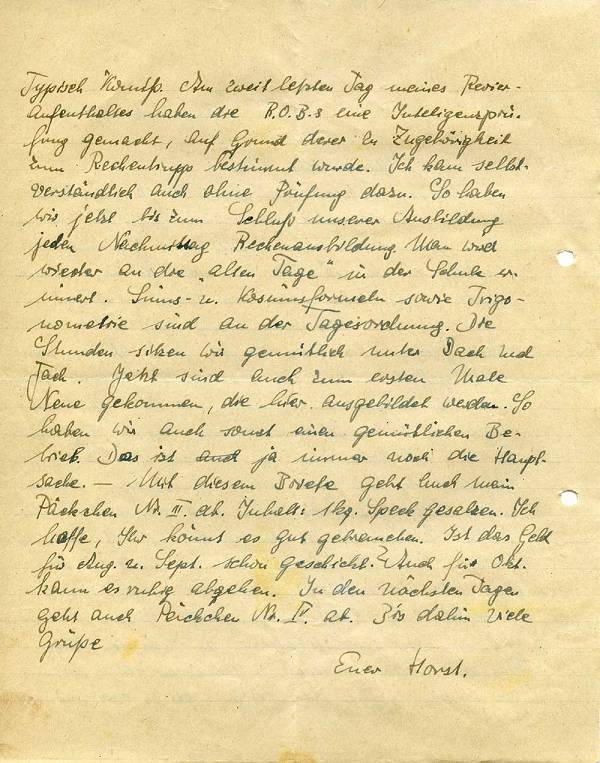 Typisch Komiß. Am zweit letzten Tag meines Revier-
Aufenthaltes haben die R.O.B.s eine Inteligensprü-
fung gemacht, auf Grund derer die Zugehörigkeit
zum Rechentrupp bestimmt wurde. Ich kam selbst-
verständlich auch ohne Prüfung dazu. So haben
wir jetzt bis zum Schluß unserer Ausbildung
jeden Nachmittag Rechenausbildung. Man wird
wieder an die „alten Tage" in der Schule er-
innert. Sinus- u. Kosinusformeln sowie Trigo-
nometrie sind an der Tagesordnung. Die
Stunden sitzen wir gemütlich unter Dach und
Fach. Jetzt sind auch zum ersten Male
Neue gekommen, die hier ausgebildet werden. So
haben wir auch sonst einen gemütlichen Be-
trieb. Das ist auch ja immer noch die Haupt-
sache. — Mit diesem Briefe geht auch mein
Päckchen Nr. III ab. Inhalt: 1kg. Speck gesalzen. Ich
hoffe, Ihr könnt es gut gebrauchen. Ist das Geld
für Aug. u. Sept. schon geschickt? Auch für Okt.
kann es ruhig abgehen. In den nächsten Tagen
geht auch Päckchen Nr. IV ab. Bis dahin viele
Grüße
Euer Horst.